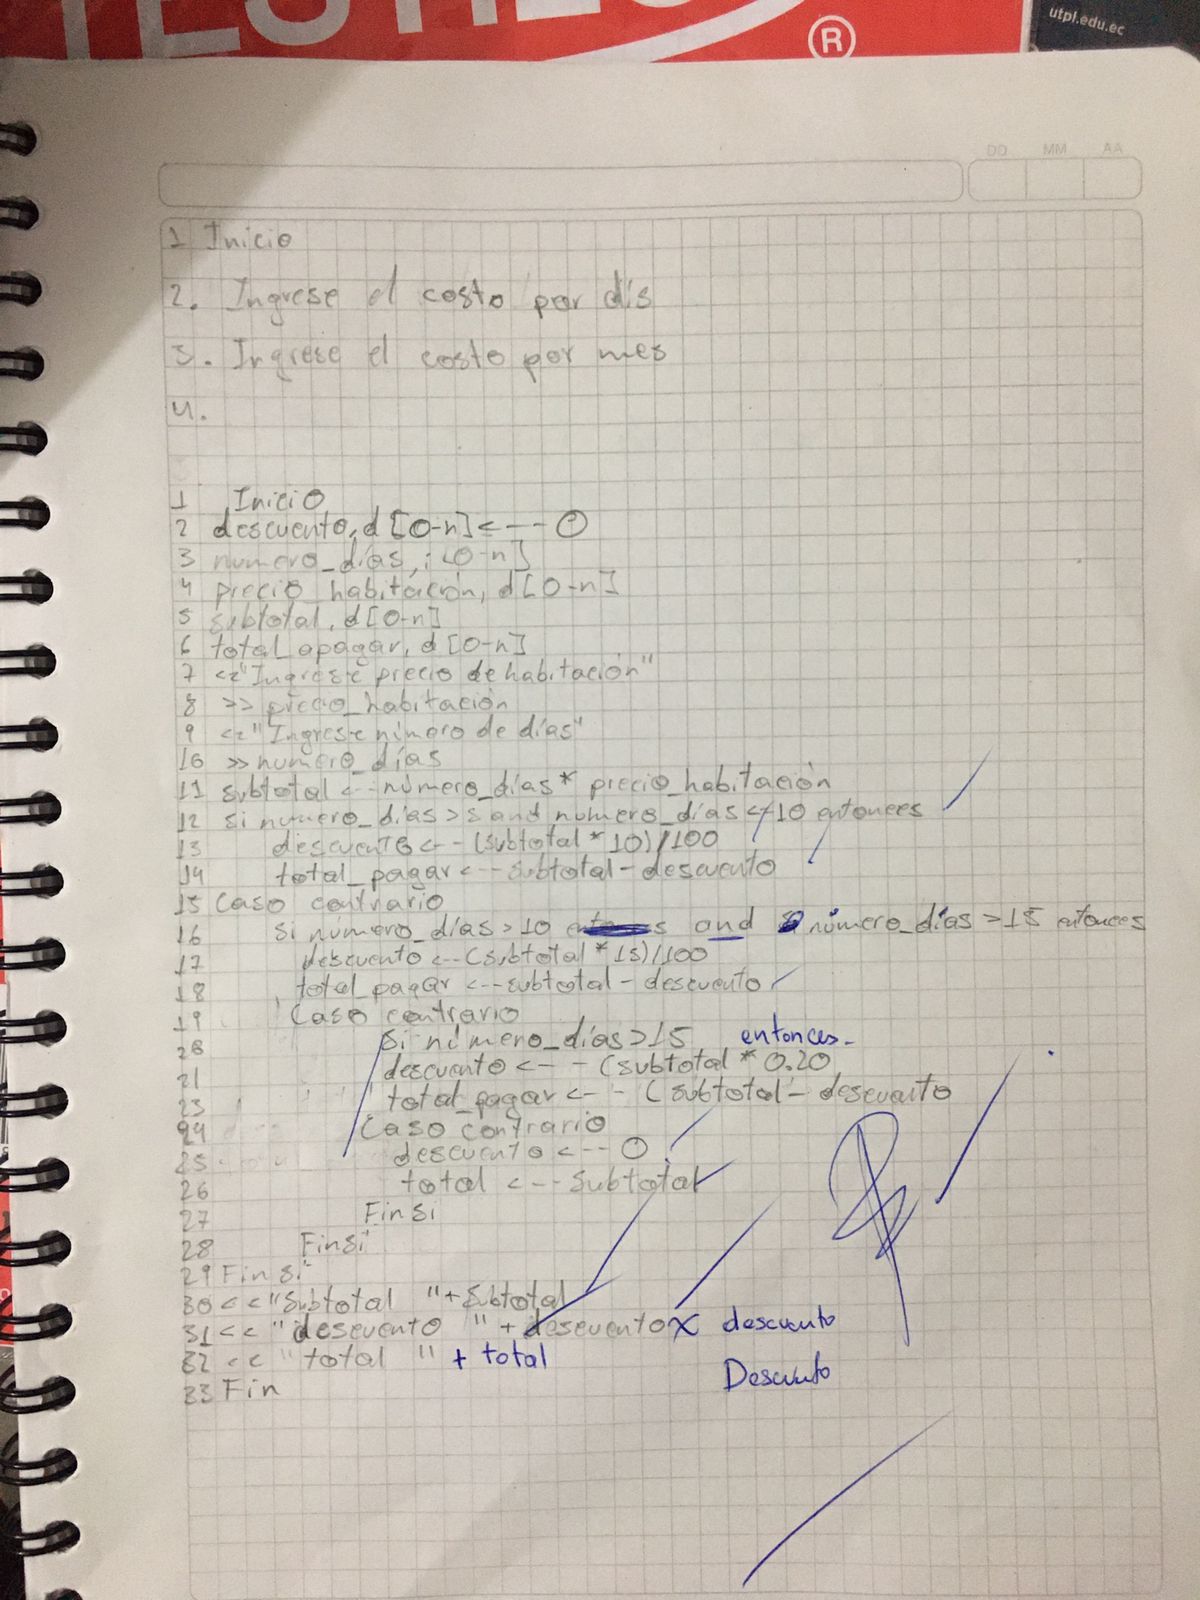 utpl.edu.ec
®
DD MM AA
1 Inicio
2. Ingrese el costo por dis
3. Ingrese el costo por mes
4.
1 Inicio
2 descuento, d [0-n] <--- 0
3 numero_días, i [0-n]
4 precio_habitación, d [0-n]
5 subtotal, d [0-n]
6 total_apagar, d [0-n]
7 << "Ingrese precio de habitación"
8 >> precio_habitación
9 << "Ingrese número de días"
10 >> numero_días
11 subtotal <-- número_días * precio_habitación
12 si numero_días > 5 and numero_días <= 10 entonces
13 descuento <-- (subtotal * 10)/100
14 total_pagar <-- subtotal - descuento
15 Caso contrario
16 si número_días > 10 and número_días > 15 entonces
17 descuento <-- (subtotal * 15)/100
18 total_pagar <-- subtotal - descuento
19 Caso contrario
20 si número_días > 15 entonces.
21 descuento <-- (subtotal * 0.20
23 total_pagar <-- (subtotal - descuento
24 Caso contrario
25 descuento <--- 0
26 total <--- Subtotal
27 Fin si
28 Fin si
29 Fin si
30 << "Subtotal " + Subtotal
31 << "desevento " + desevento X descuento
32 << "total " + total
Descuento
33 Fin